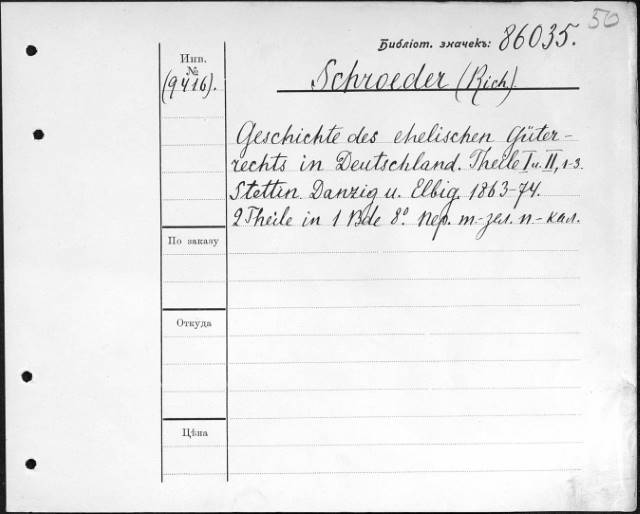 50
Библіот. значекъ: 86035.
Инв.
№
(9416).
Schroeder (Rich).
Geschichte des ehelischen Güter-
rechts in Deutschland. Theile I u. II, 1-3.
Stettin. Danzig u. Elbig. 1863-74.
2 Theile in 1 Bde 8º. пер. т-зел. п-кал.
По заказу
Откуда
Цѣна